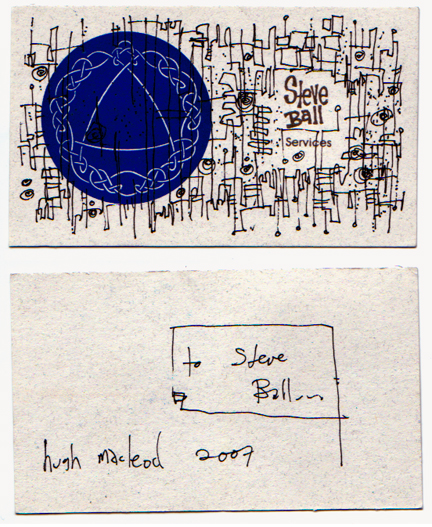 Steve
Ball
Services
to Steve
Ball
hugh macleod 2007